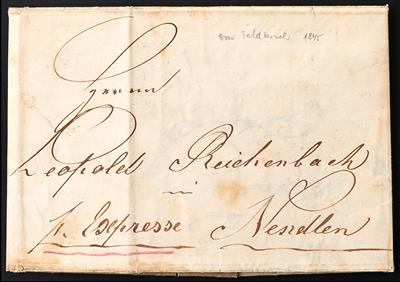 von Feldkirch 1845
Herrn
Leopold Reichenbach
in
p. Expresse Nendlen